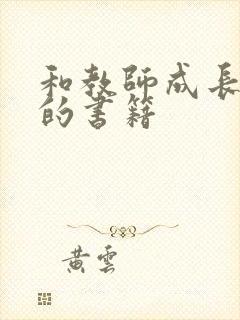 和教師成長
的書籍
黃雲